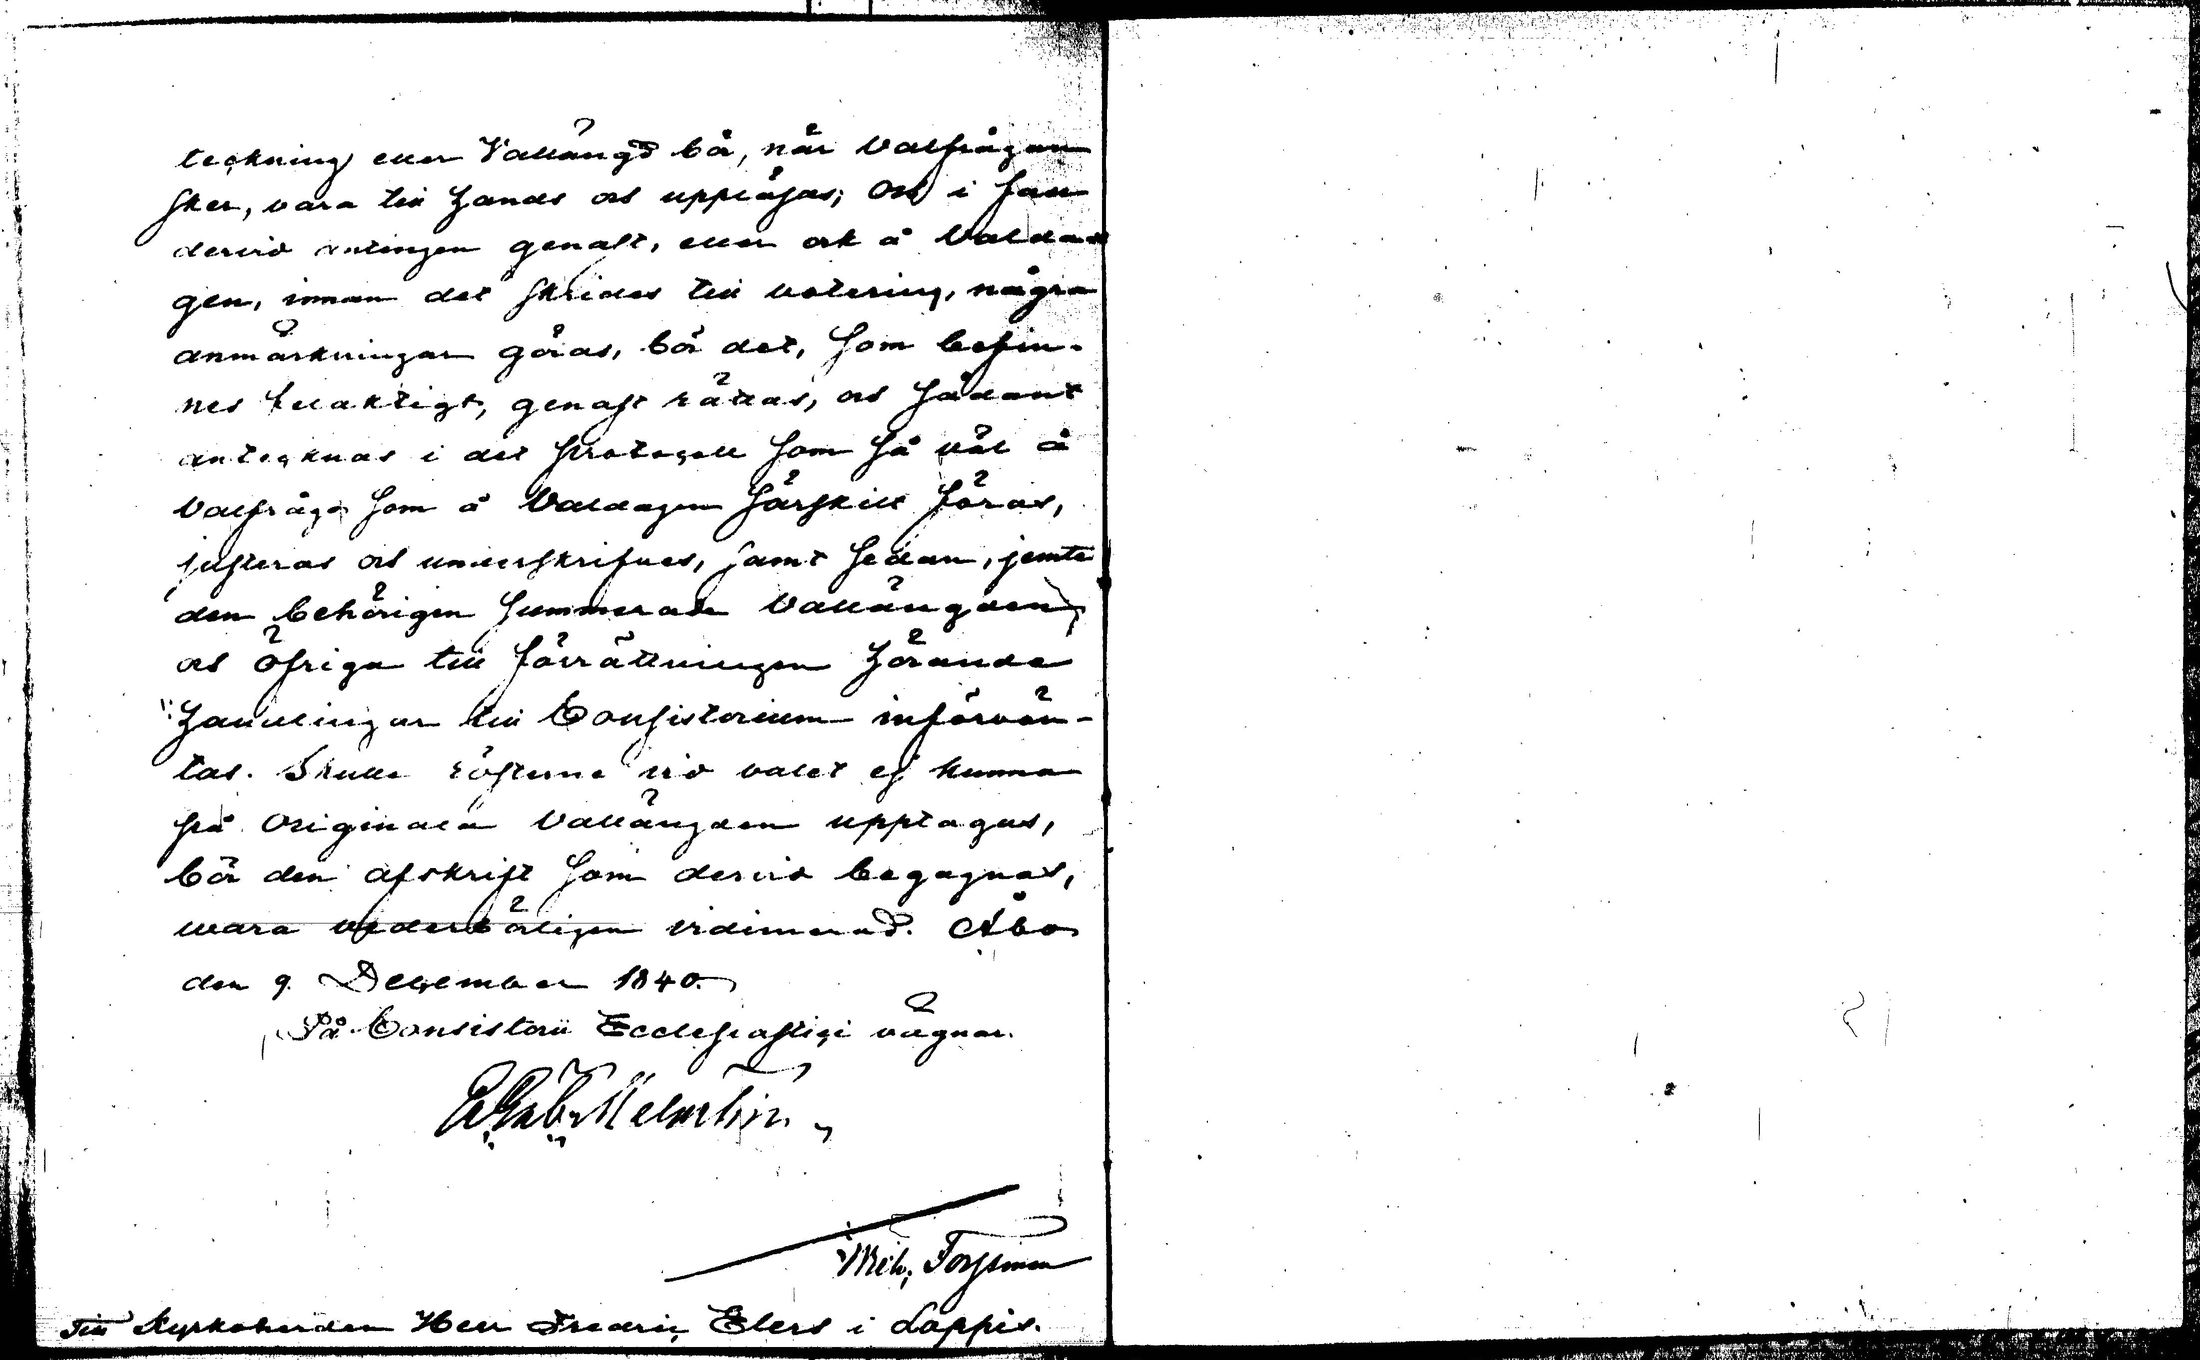 teckning eller Vallängd bör, när Valfrågan
sker, vara till hands och uppläsas; Och i fall
dervid antingen genast, eller ock å Valda-
gen, innan det skrides till votering, några
anmärkningar göras, bör det, som befin-
nes felaktigt, genast rättas, och sådant
antecknas i det Protocoll som så väl å
Valfråge som å Valdagen särskilt föras,
justeras och underskrifves, samt sedan, jemte
den behörigen summerade Vallängden,
och öfriga till förrättningen hörande
Handlingar till Consistorium införvän-
tas. Skulle rösterne vid valet ej kunna
på Originala Vallängden upptagas,
bör den afskrift som dervid begagnas,
wara vederbörligen vidimerad. Åbo
den 9. December 1840.
På Consistorii Ecclesiastici vägnar.
Melartin
Forssman
Till Kyrkoherden Herr Fredric Elers i Lappis.